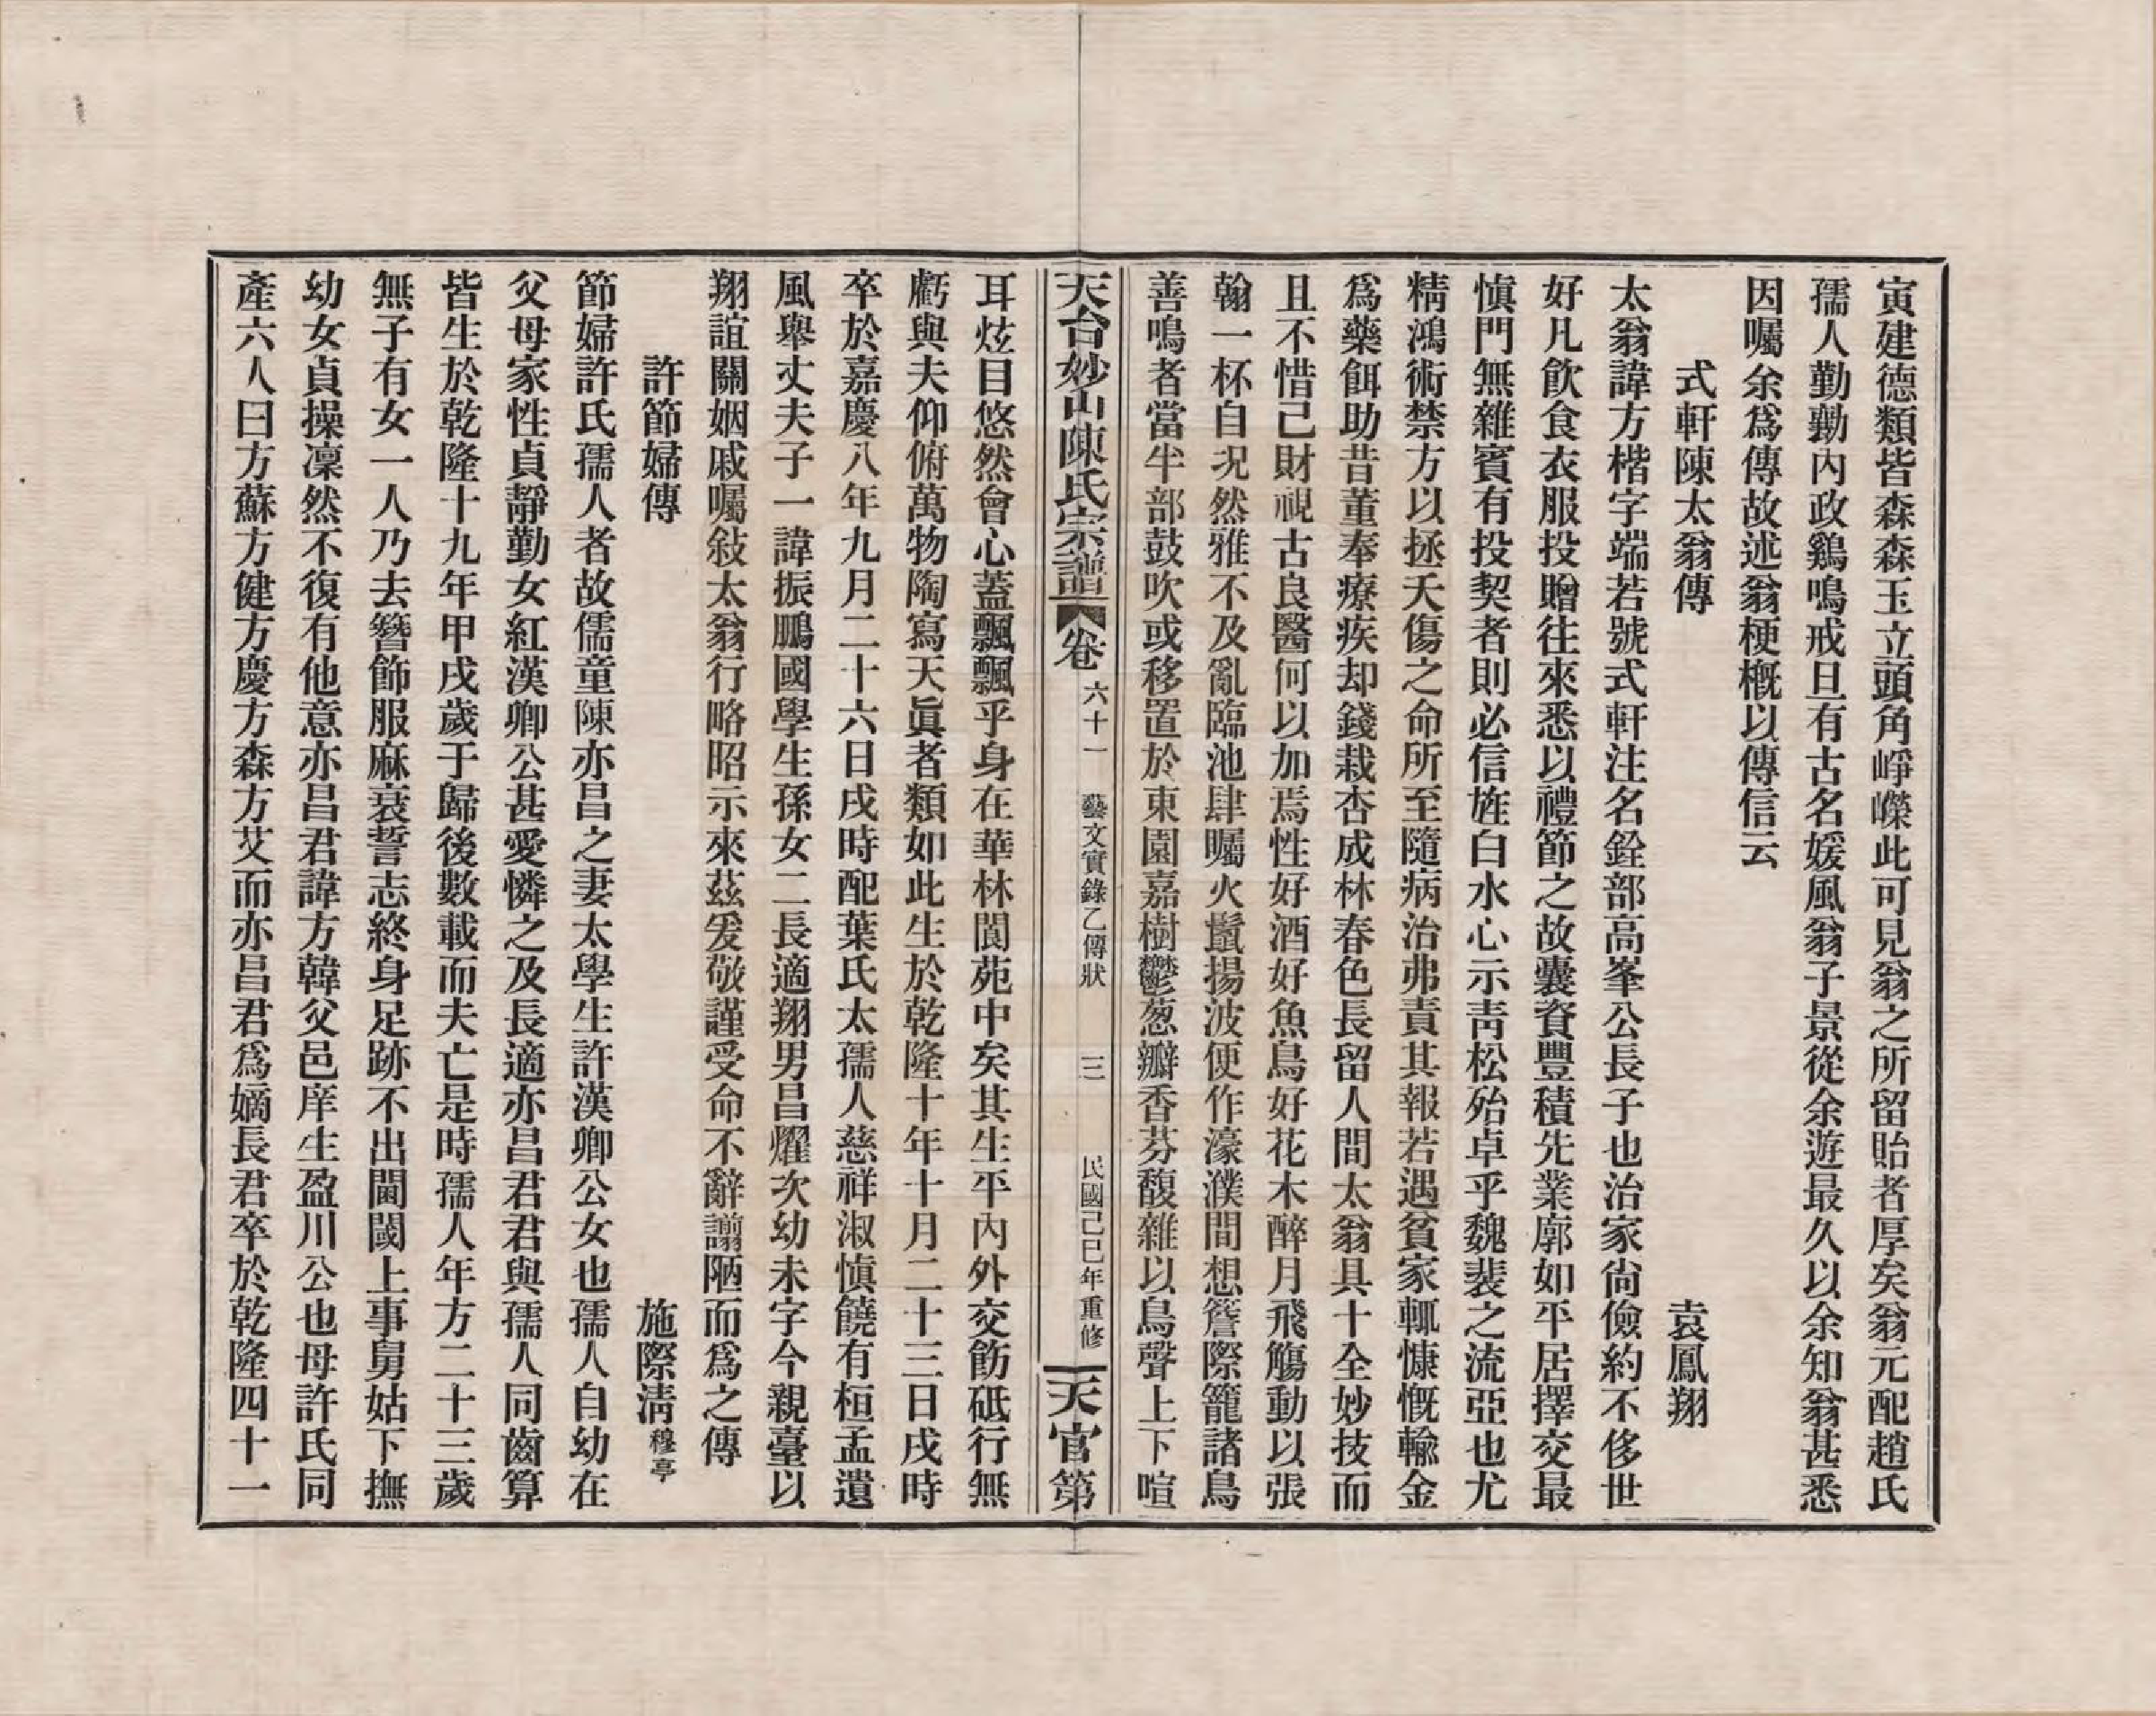 寅建德類皆森森玉立頭角崢嶸此可見翁之所留貽者厚矣翁元配趙氏
孺人勤勷內政鷄鳴戒旦有古名媛風翁子景從余遊最久以余知翁甚悉
因囑余爲傳故述翁梗槪以傳信云
式軒陳太翁傳 袁鳳翔
太翁諱方楷字端若號式軒注名銓部高峯公長子也治家尙儉約不侈世
好凡飮食衣服投贈往來悉以禮節之故囊資豐積先業廓如平居擇交最
愼門無雜賓有投契者則必信旌白水心示靑松殆卓乎魏裴之流亞也尤
精鴻術禁方以拯夭傷之命所至隨病治弗責其報若遇貧家輒慷慨輸金
爲藥餌助昔董奉療疾却錢栽杏成林春色長留人間太翁具十全妙技而
且不惜己財視古良醫何以加焉性好酒好魚鳥好花木醉月飛觴動以張
翰一杯自況然雅不及亂臨池肆矚火鬣揚波便作濠濮間想簷際籠諸鳥
善鳴者當半部鼓吹或移置於東園嘉樹鬱葱瓣香芬馥雜以鳥聲上下喧
天台妙山陳氏宗譜 卷六十一 藝文實錄乙傳狀 三 民國己巳年重修 天官第
耳炫目悠然會心蓋飄飄乎身在華林閬苑中矣其生平內外交飭砥行無
虧與夫仰俯萬物陶寫天眞者類如此生於乾隆十年十月二十三日戌時
卒於嘉慶八年九月二十六日戌時配葉氏太孺人慈祥淑愼饒有桓孟遺
風舉丈夫子一諱振鵬國學生孫女二長適翔男昌燿次幼未字今親臺以
翔誼關姻戚囑敍太翁行略昭示來茲爰敬謹受命不辭謭陋而爲之傳
許節婦傳 施際淸穆亭
節婦許氏孺人者故儒童陳亦昌之妻太學生許漢卿公女也孺人自幼在
父母家性貞靜勤女紅漢卿公甚愛憐之及長適亦昌君君與孺人同齒算
皆生於乾隆十九年甲戌歲于歸後數載而夫亡是時孺人年方二十三歲
無子有女一人乃去簪飾服麻衰誓志終身足跡不出閫閾上事舅姑下撫
幼女貞操凜然不復有他意亦昌君諱方韓父邑庠生盈川公也母許氏同
產六人曰方蘇方健方慶方森方艾而亦昌君爲嫡長君卒於乾隆四十一